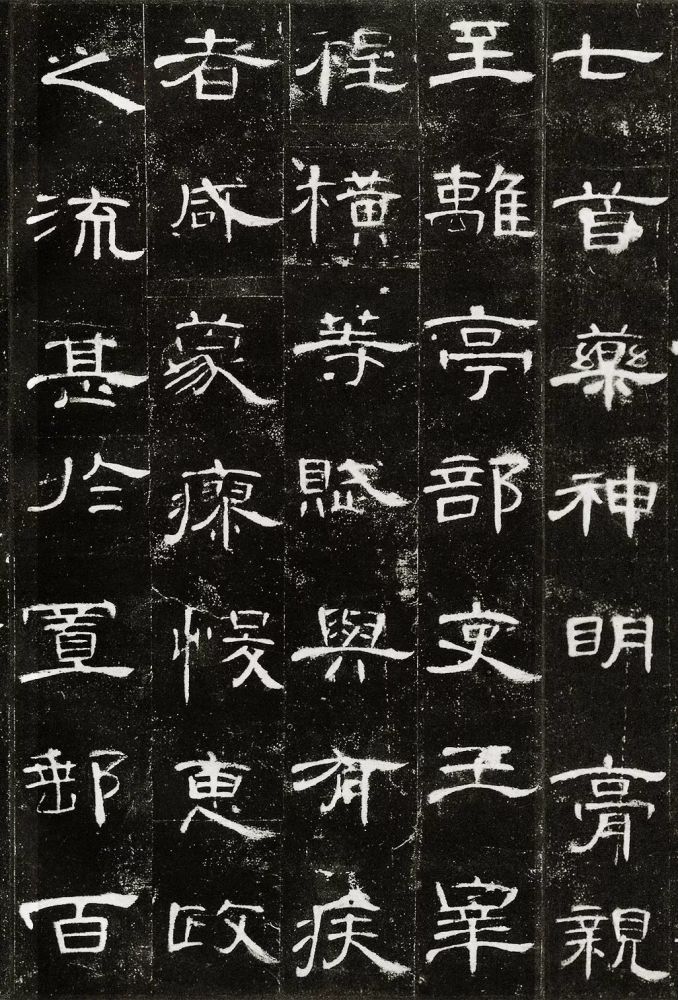 七首藥神明膏親
至離亭部吏王皋
程橫等賦與有疾
者咸蒙瘳悛惠政
之流甚於置郵百